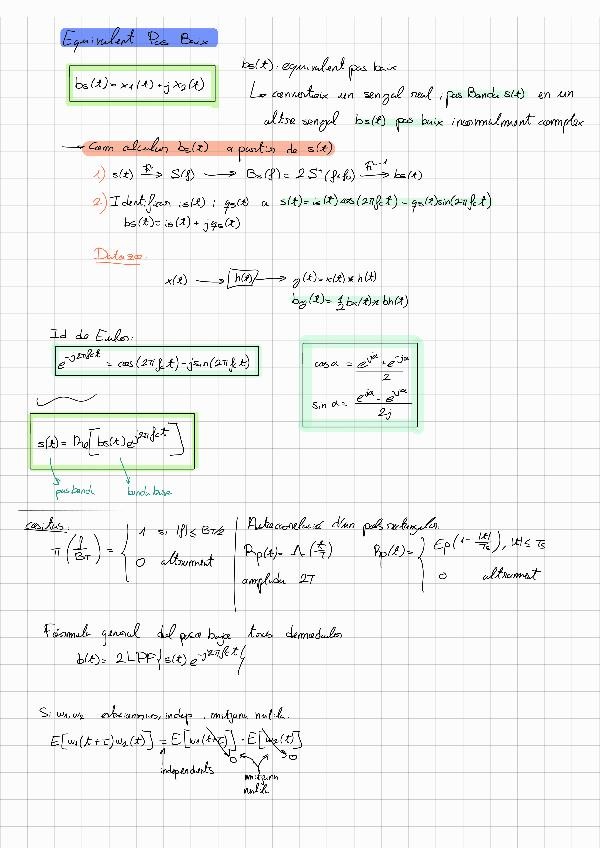 Equivalent Pas Baix
bs(t) = x1(t) + j x2(t)
bs(t): equivalent pas baix
↳ converteix un senyal real, pas Banda s(t) en un
altre senyal bs(t) pas baix normalment complex
→ Com calcular bs(t) a partir de s(t)
1) s(t) → S(f) → Bs(f) = 2 S⁺(f+fc) → bs(t)
2) Identificar is(t) i qs(t) a s(t) = is(t)cos(2πfct) - qs(t)sin(2πfct)
bs(t) = is(t) + jqs(t)
x(t) → h(t) → y(t) = x(t) * h(t)
by(t) = 1/2 bx(t) * bh(t)
Id de Euler:
e^-j2πfct = cos(2πfct) - jsin(2πfct)
cos α = (e^jα + e^-jα)/2
sin α = (e^jα - e^-jα)/2j
s(t) = Re[bs(t) e^j2πfct]
pas banda
banda base
cositas
π(f/BT) = { 1 si |f| ≤ BT/2
0 altrament
Autocorrelació d'un pols rectangular
Rp(t) = Λ(t/T)
amplada 2T
Rp(t) = { Ep(1 - |t|/Ts), |t| ≤ Ts
0 altrament
Fórmula general del paso bajo tras demodular
b(t) = 2LPF{s(t) e^-j2πfct}
Si w1, w2 estacionaris, indep, mitjana nul·la.
E[w1(t+τ)w2(t)] = E[w1(t+τ)] · E[w2(t)]
0
0
independents
mitjana
nul·la